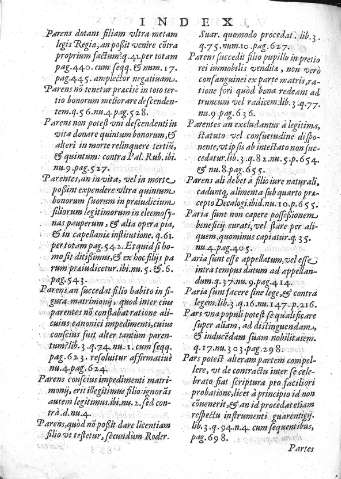 INDEX
Parens dotans filiam vltra metam
legis Regiæ, an posit venire cōtra
proprium factum? q.41.per totam
pag.440. cum seqq. & num.17.
pag.445. amplector negatiuam.
Parens nō tenetur præcisè in toto ter-
tio bonorum meliorare descenden-
tem.q.56.nu.4.pag.528.
Parens non potest vni descendenti in
vita donare quintum bonorum, &
alteri in morte relinquere tertiū,
& quintum: contra Pal. Rub. ibi.
nu.9.pag.527.
Parentes, an in vita, vel in morte
possint expendere vltra quintum
bonorum suorum in præiudicium
filiorum legitimorum in eleemosy-
nas pauperum, & alia opera pia,
& in capellanis institutione. q.61.
per totam pag.542. Et quid si ho-
mo sit ditissimus, & ex hoc filijs pa
rum præiudicetur. ibi.nu.5.& 6.
pag.543.
Parens, an succedat filio habito in fi-
gura matrimonij, quod inter eius
parentes nō constabat ratione ali-
cuius canonici impedimenti, cuius
conscius fuit alter tantùm paren-
tum? lib.3.q.74.nu.1. cum seqq.
pag.623. resoluitur affirmatiuè
nu.4.pag.624.
Parens conscius impedimenti matri-
monij, erit illegitimæ filio ignorās
autem legitimus.ibi.nu.2.sed con-
trà.d.nu.4.
Parens, quòd nō possit dare licentiam
filio vt testetur, secundum Roder.
Suar. quomodo procedat. lib.3.
q.75.num.10.pag.627.
Parens succedit filio pupillo in pretio
rei immobilis venditæ, non verò
consanguinei ex parte matris, ra-
tione fori quòd bona redeant ad
truncum vel radicem.lib.3.q.77.
nu.9.pag.636.
Parentes an excludantur à legitima,
statuto vel consuetudine dispo-
nente, vt ipsis ab intestato non suc-
cedatur.lib.3.q.82.nu.5.p.654.
& nu.8.pag.655.
Parens ali debet à filio iure naturali,
cadunt; alimenta sub quarto præ-
cepto Decalogi.ibid.nu.10.p.655.
Paria sunt non capere possessionem
beneficij curati, vel stare per ali-
quem, quominus capiatur.q.35.
nu.4.pag.405.
Paria sunt esse appellatum, vel esse
intra tempus datum ad appellan-
dum.q.37.nu.9.pag.414.
Paria sunt facere sine lege, & contra
legem.lib.3.q.16.nu.147.p.216.
Pars vna populi potest se qualificare
super aliam, ad distinguendam,
& inducēdam suam nobilitatem.
q.17.nu.303.pag.298.
Pars potest alteram partem compel-
lere, vt de contractu inter se cele-
brato fiat scriptura pro faciliori
probatione, licet à principio id non
cōuenerit, & an id procedat etiam
respectu instrumenti guarentigij.
lib.3.q.94.n.4 cum sequentibus,
pag.698.
Partes